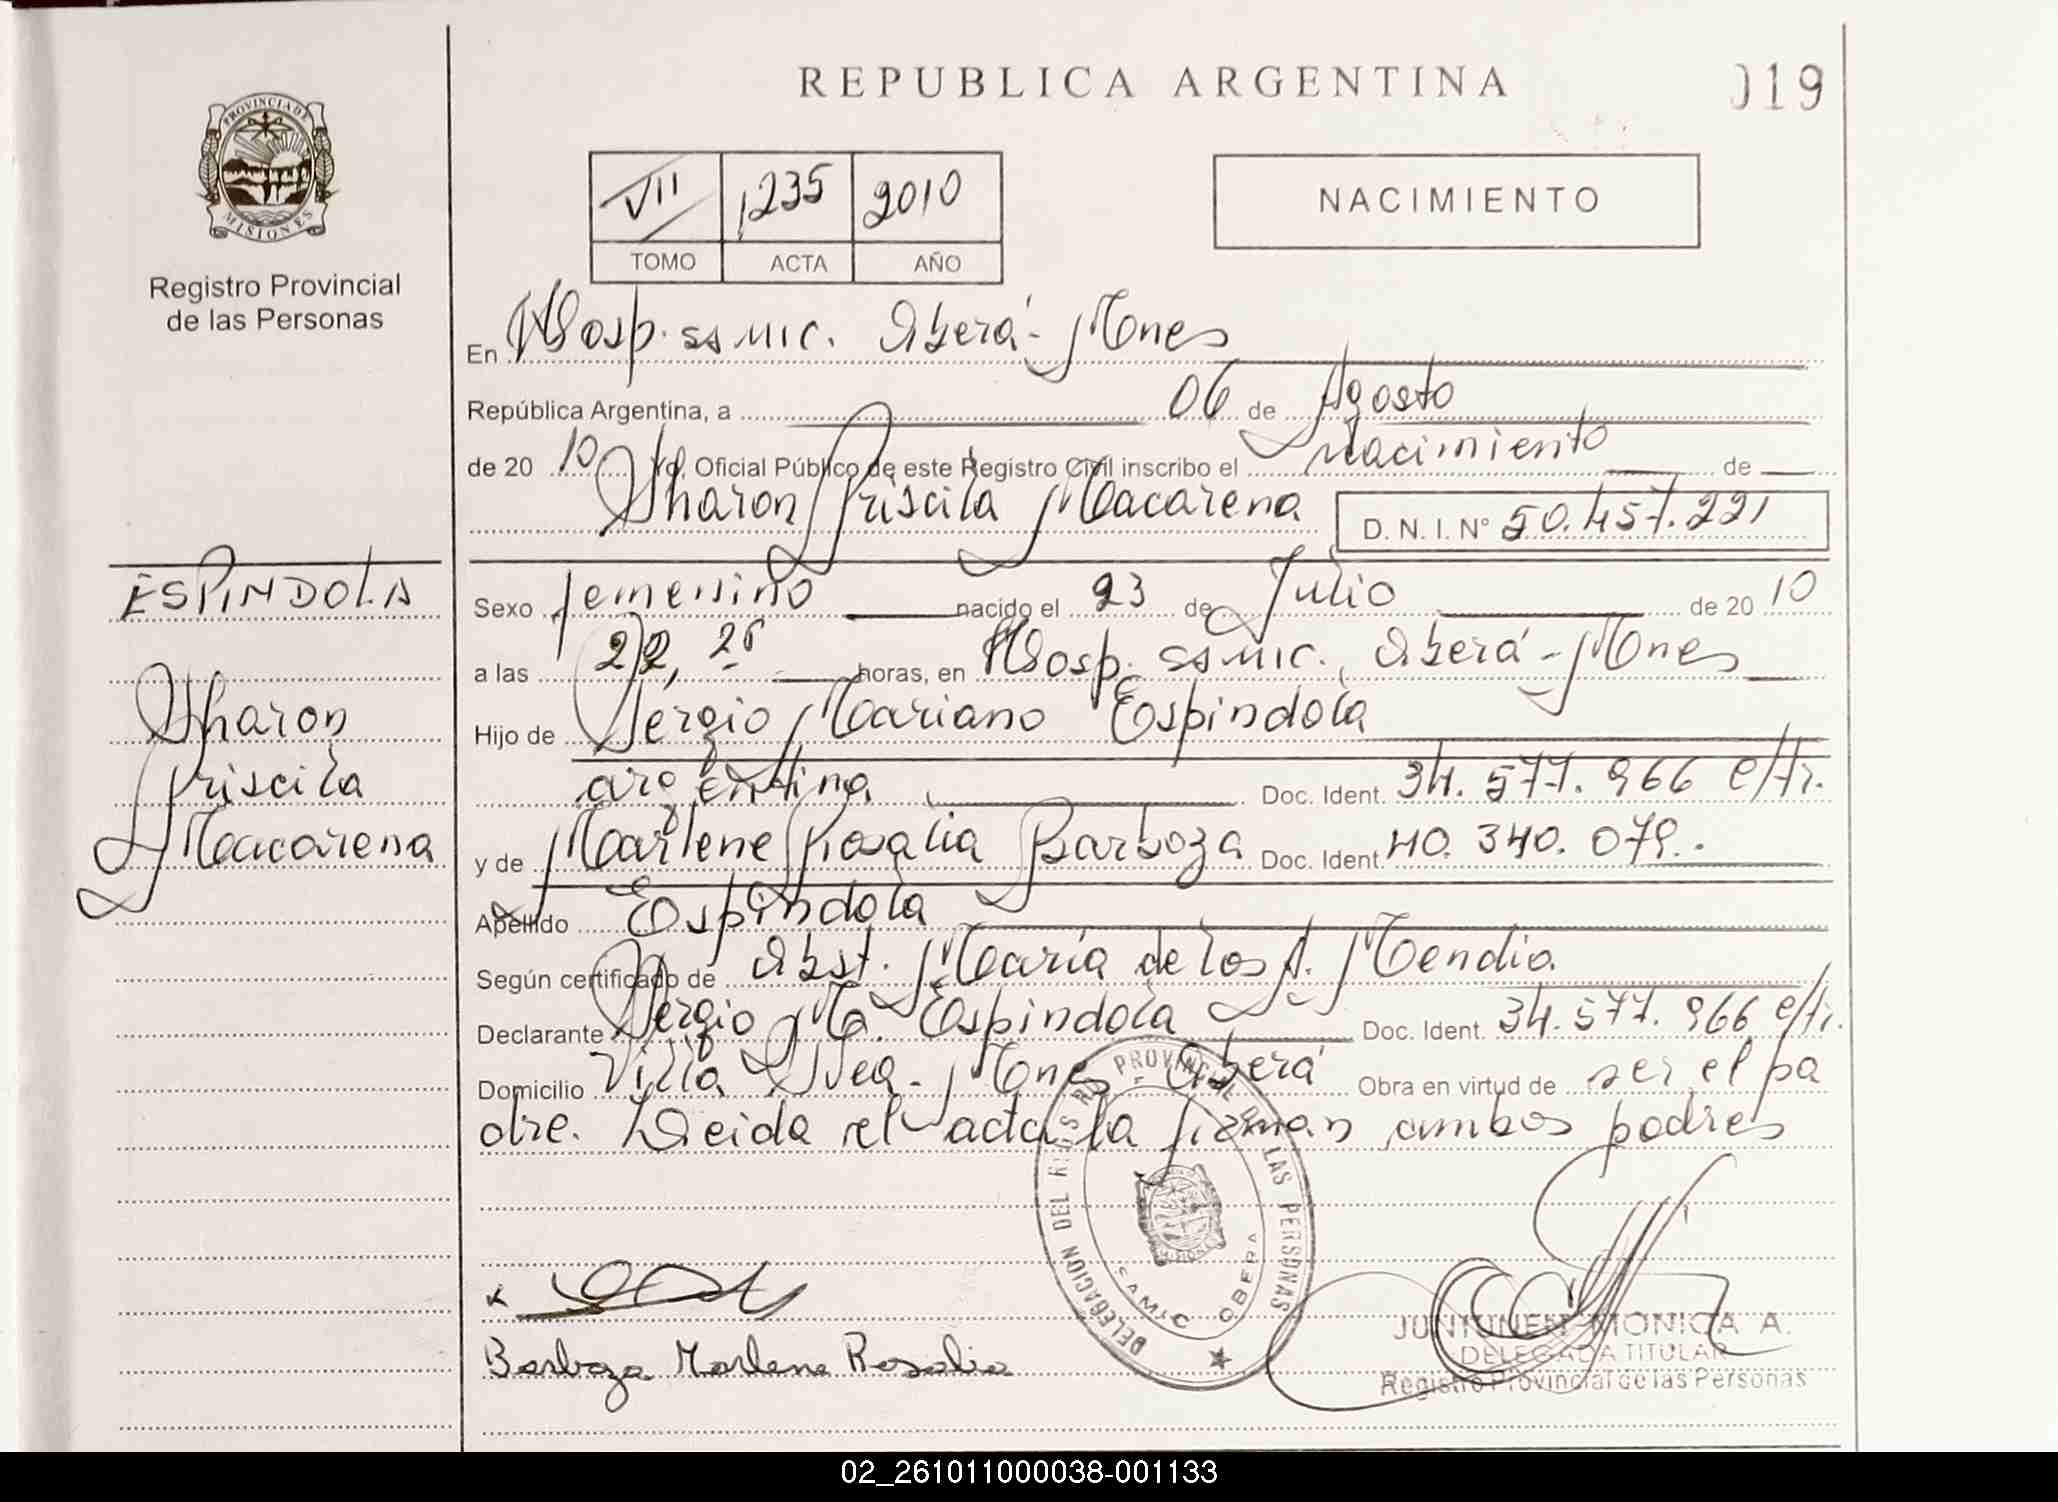 REPUBLICA ARGENTINA
019
PROVINCIA DE
MISIONES
Registro Provincial
de las Personas
VII 1235 2010
TOMO ACTA AÑO
NACIMIENTO
En Hosp. SAMIC. Oberá - Mnes
República Argentina, a 06 de Agosto
de 20 10 Yo, Oficial Público de este Registro Civil inscribo el Nacimiento de
Sharon Priscila Macarena D. N. I. Nº 50.457.221
ESPINDOLA
Sharon
Priscila
Macarena
Sexo femenino nacido el 23 de Julio de 20 10
a las 22, 25 horas, en Hosp. SAMIC. Oberá - Mnes
Hijo de Sergio Mariano Espindola
argentina Doc. Ident. 34.577.966 e/tr.
y de Marlene Rosalia Barboza Doc. Ident. 40.340.079.
Apellido Espindola
Según certificado de Obst. María de los A. Mendia.
Declarante Sergio Ma. Espindola Doc. Ident. 34.577.966 e/tr.
Domicilio Villa Svea - Mnes Oberá Obra en virtud de ser el pa
dre. Leida el acta la firman ambos padres
DELEGACION DEL REGISTRO PROVINCIAL DE LAS PERSONAS
SAMIC OBERA
Barboza Marlene Rosalia
JUNTUNEN MONICA A.
DELEGADA TITULAR
Registro Provincial de las Personas
02_261011000038-001133